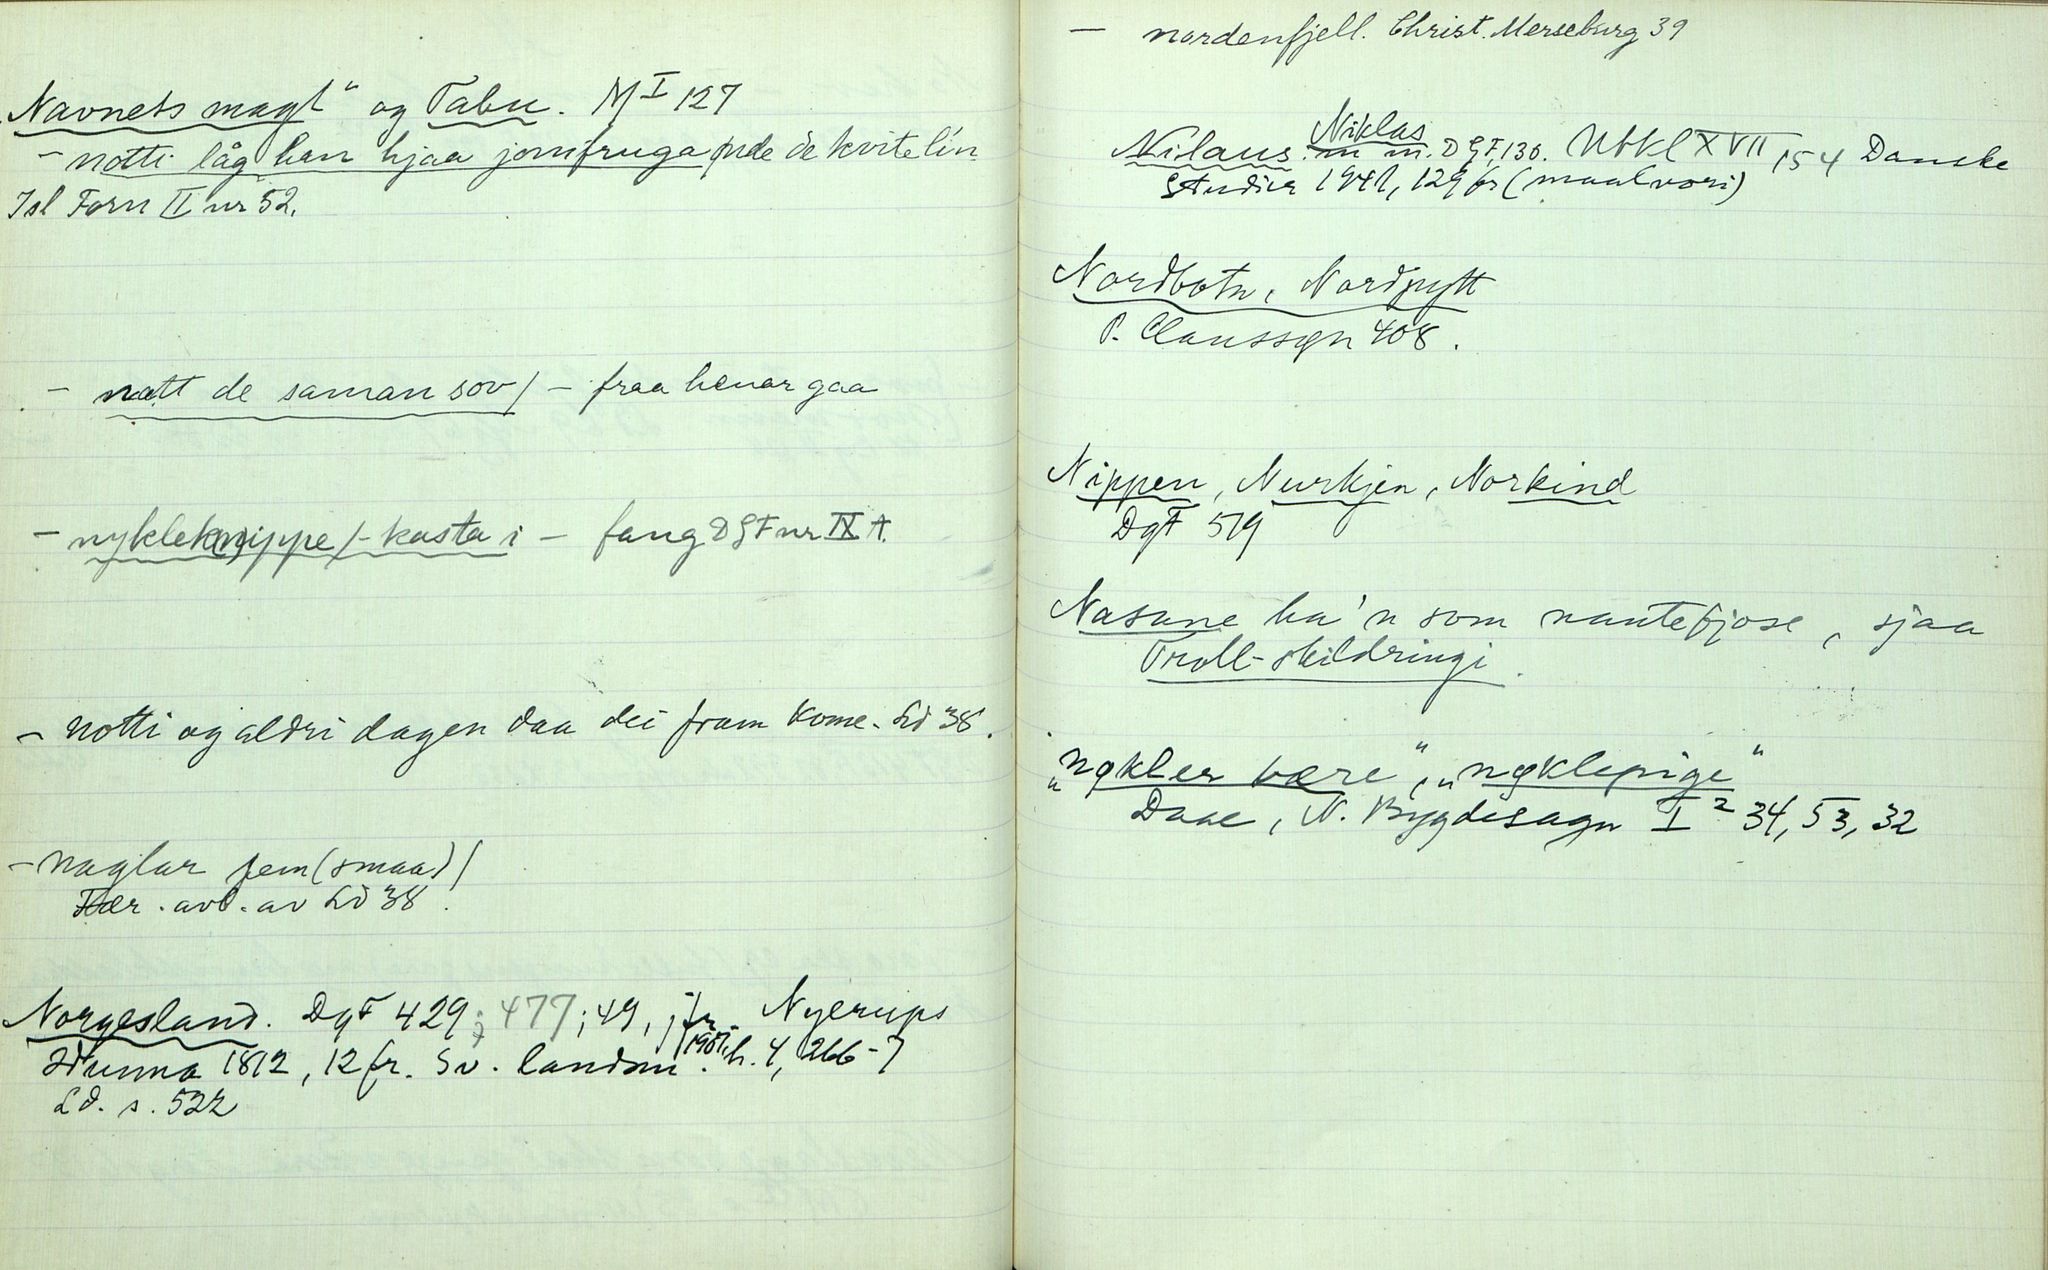 „Navnets magt“ og Tabu. M I 127
– notti låg han hjaa jomfruga / de kvite lin
Isl Forn II nr 52.
– natt de saman sov / – fraa henar gaa
– nykleknippe / – kasta i – fang DgF nr IX A.
– notti og aldri dagen daa dei fram kome. Ld 38.
– naglar fem (smaa) /
Fær. avl. av Ld 38.
Norgesland. DgF 429; 477; 49, jfr. Nyerups
Idunna 1812, 12 fr. Sv. landsm. 1907, h. 4, 266-7
Ld. s. 522
– nordenfjell. Christ. Merseburg 39
Niklas
Nilaus m m. DgF, 130. Ubkl XVII 154 Danske
Studier 1941, 129 fr (maalvori)
Nordbotn, Nordpytt
P. Claussøn 408.
Nippen, Nurkjen, Norkind
DgF 519
Nasane ha'n som nautefjose, sjaa
Troll-skildringi.
„nøkler bære“, „nøklepige“
Daae, N. Bygdesagn I² 34, 53, 32